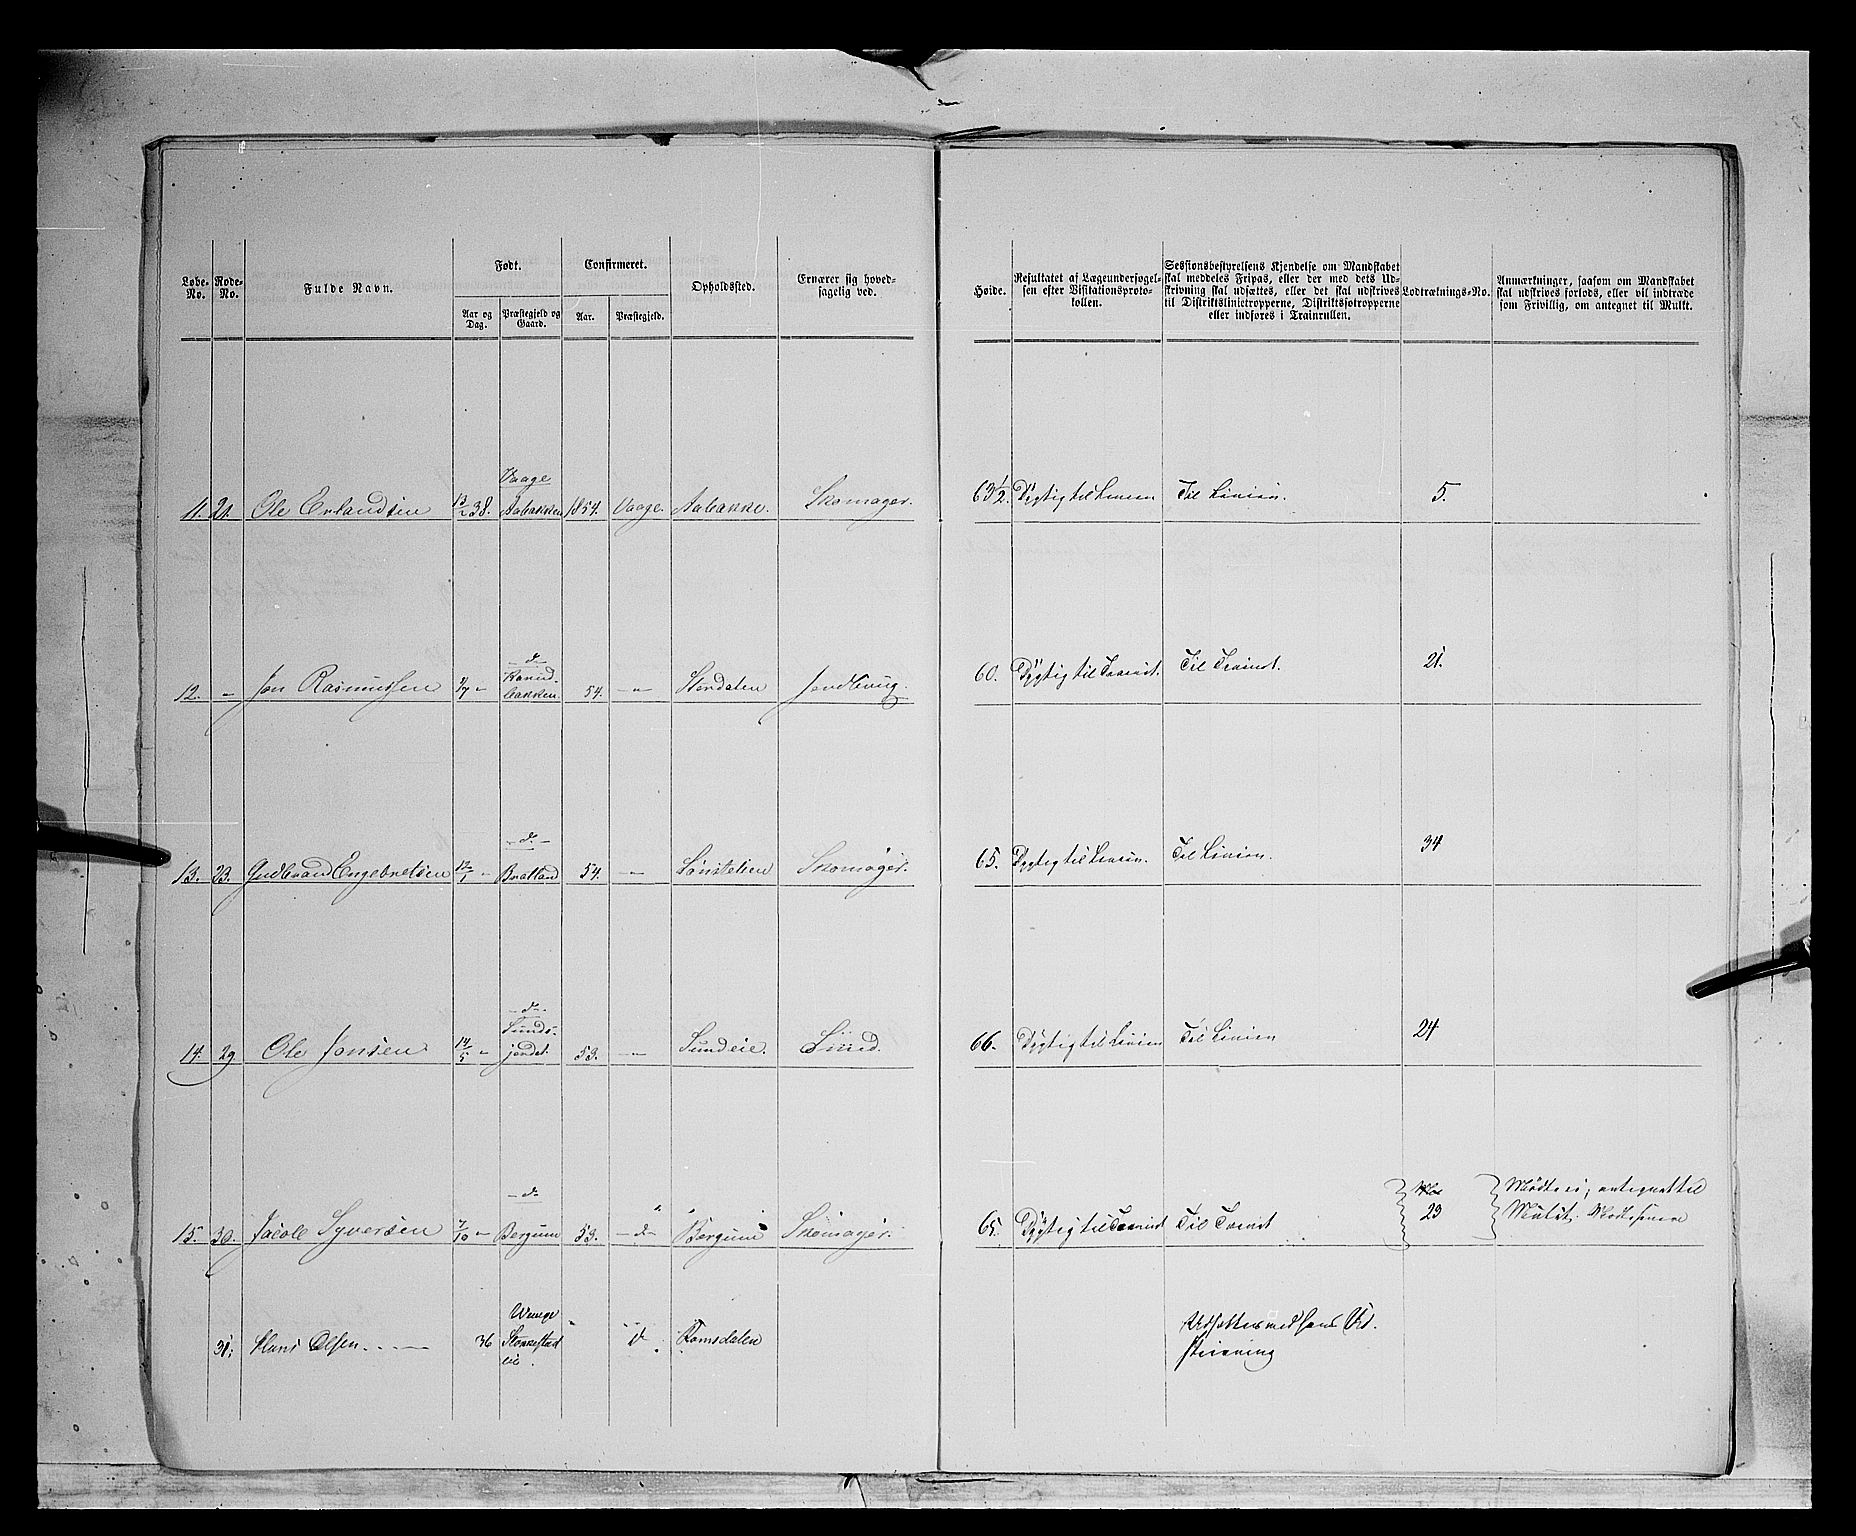 Løbe-No. Rode-No. Fulde Navn. Født. Aar og Dag. Præstegjeld og Gaard. Confirmeret. Aar. Præstegjeld. Opholdssted. Ernærer sig hovedsagelig ved. Høide. Resultatet af Lægeundersøgelsen efter Visitationsprotokollen. Sessionsbestyrelsens Kjendelse om Mandskabet skal meddeles Fripas, eller der med dets Udskrivning skal udsættes, eller det skal udskrives til Distriktslinietropperne, Distriktsfotropperne eller indføres i Trainrullen. Lodtræknings-No. Anmærkninger, saasom om Mandskabet skal udskrives forlods, eller vil indtræde som Frivillig, om antegnet til Mulkt.
11. 21. Ole Erlandsen 13/2 38. Vaage Aabakken 1854. Vaage. Aabakke. Skomager. 63½. Dygtig til Linien Til Linien. 5.
12. - Jon Rasmussen - do bakken. 54. -"- Stordalen 60. Dygtig til Trainet. Til Trainet. 21.
13. 23. Gudbrand Engebretsen 12/1 - -do- Bratland 54. -"- Skomager. 65. Dygtig til Linien. Til Linien. 34
14. 29. Ole Jonsen 14/5 - -do- Sunds- jordet. 53. -"- Sundeie. Smed. 66. Dygtig til Linien Til Linien 24
15. 30. Jacob Syversen 7/10 - -do- Bergum 53. -do- Bergum Skomager. 65. Dygtig til Trainet Til Trainet 23 Mødte ei, antegnet til Mulct. Mødt senere
31. Hans Olsen 36 Stokkestad eie. do Romsdalen Udsættes med hans Udskrivning